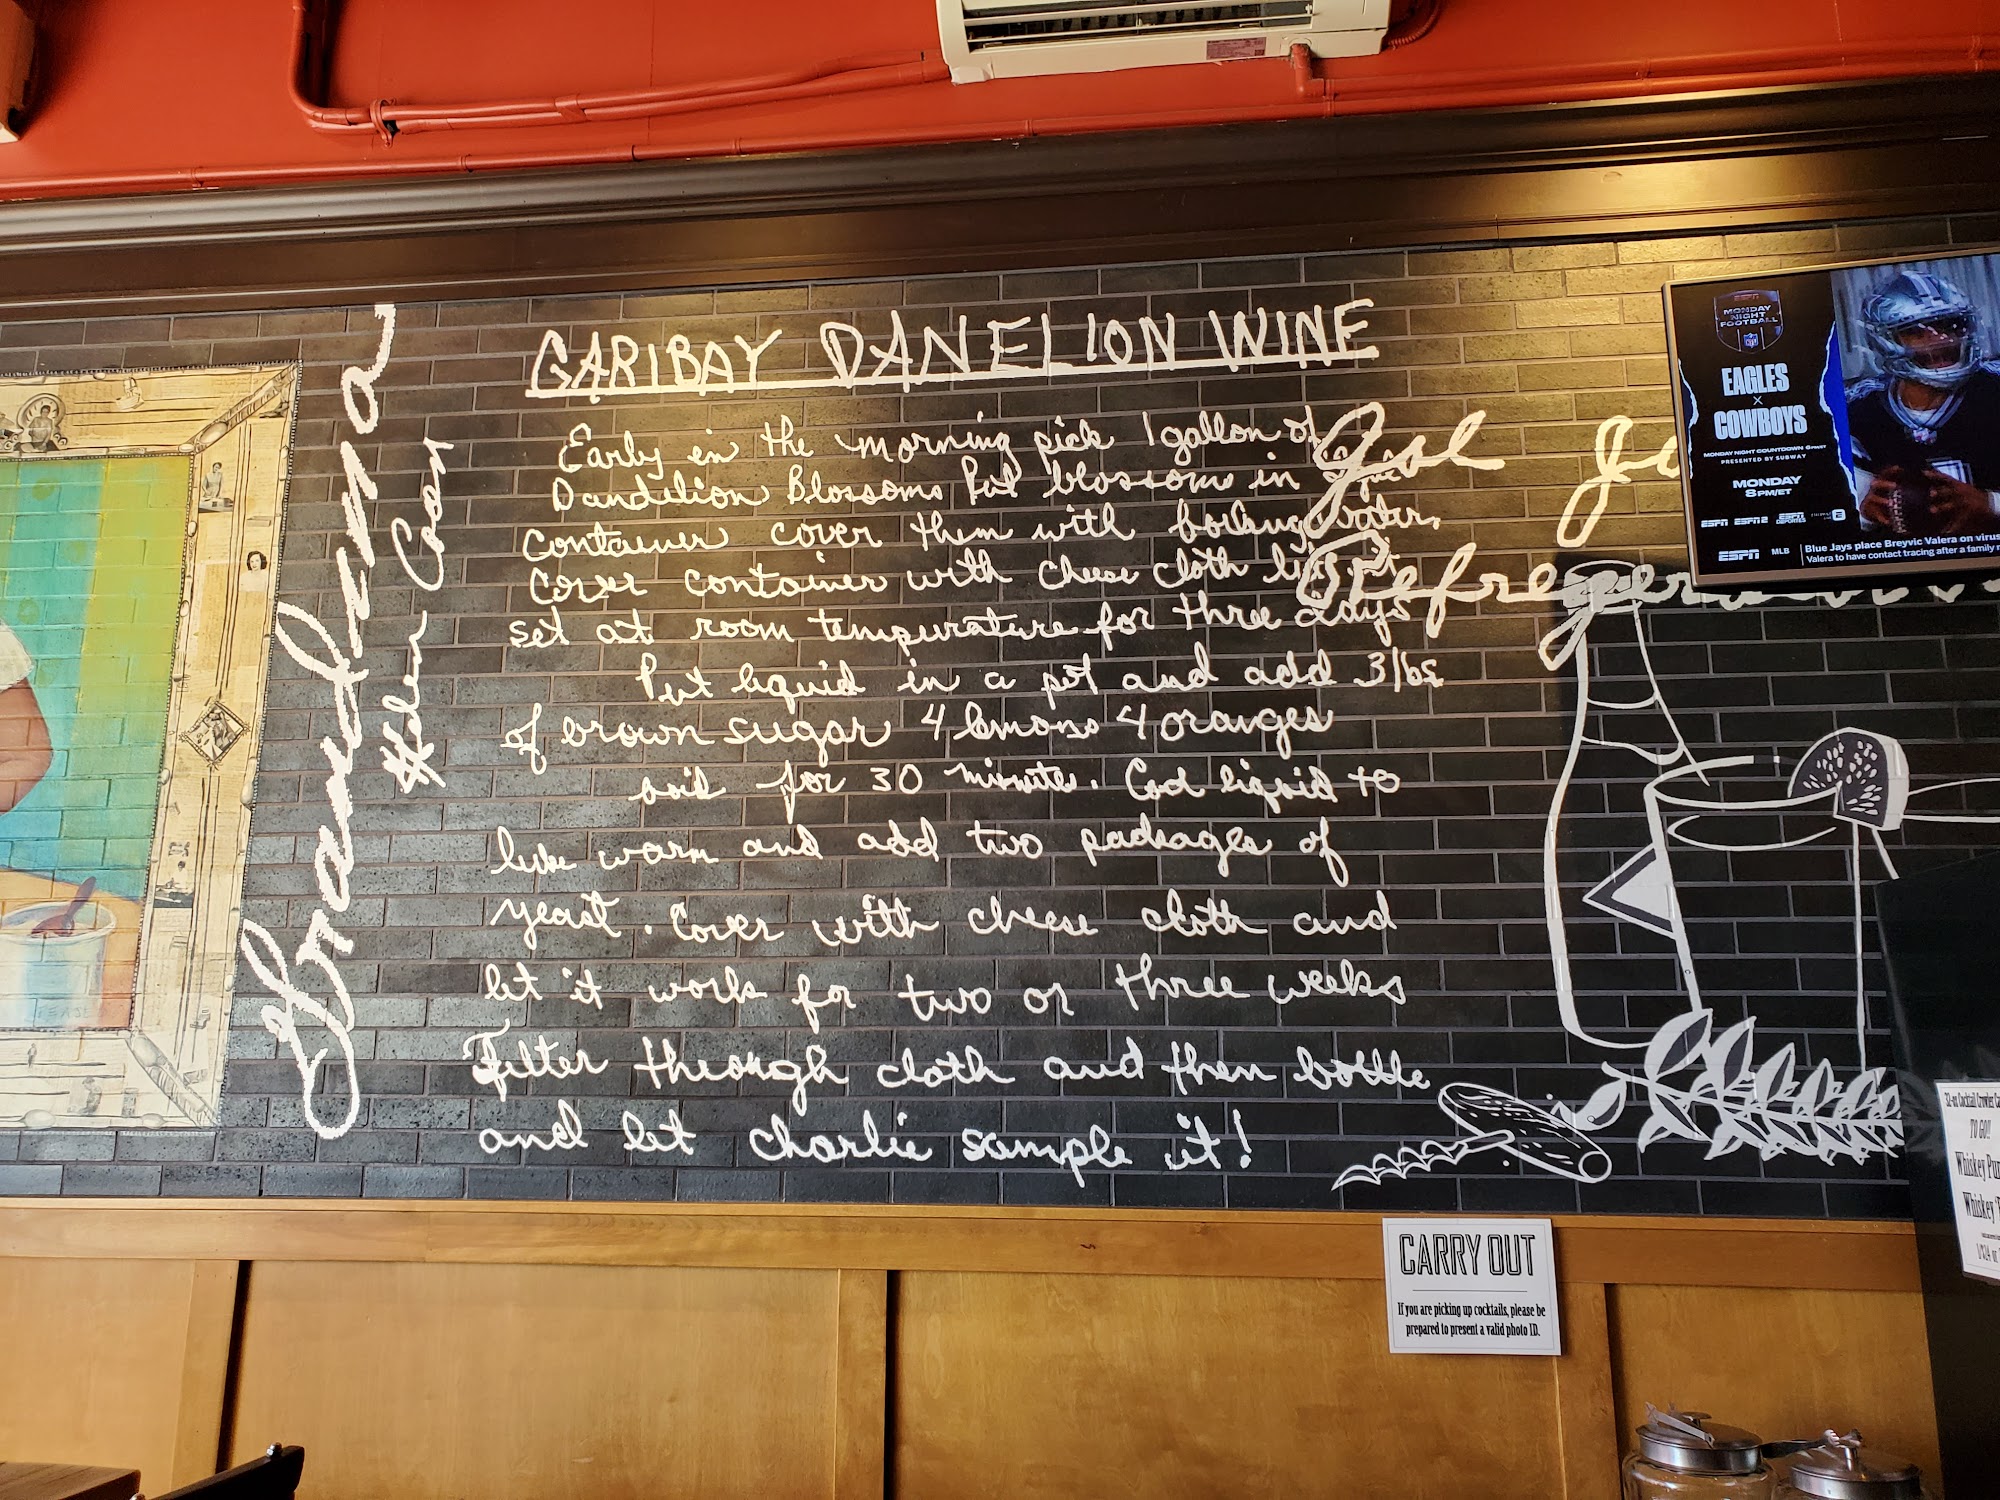 GARIBAY DANELION WINE
Early in the morning pick 1 gallon of
Dandelion Blossoms Put blossoms in
container cover them with boiling water.
Cover container with cheese cloth
set at room tempurature for three days
Put liquid in a pot and add 3 lbs
of brown sugar 4 lemons 4 oranges
boil for 30 minutes. Cool liquid to
luke warm and add two packages of
yeast. Cover with cheese cloth and
let it work for two or three weeks
Filter through cloth and then bottle
and let charlie sample it!
EAGLES
X
COWBOYS
ESPN
MONDAY
NIGHT
FOOTBALL
MONDAY NIGHT COUNTDOWN 6PM/ET
PRESENTED BY SUBWAY
MONDAY
8PM/ET
ESPN ESPN2 ESPN DEPORTES
ESPN MLB
Blue Jays place Breyvic Valera on virus
Valera to have contact tracing after a family
CARRY OUT
If you are picking up cocktails, please be
prepared to present a valid photo ID.
32-oz Cocktail Crowler
TO GO!!
Whiskey
Whiskey